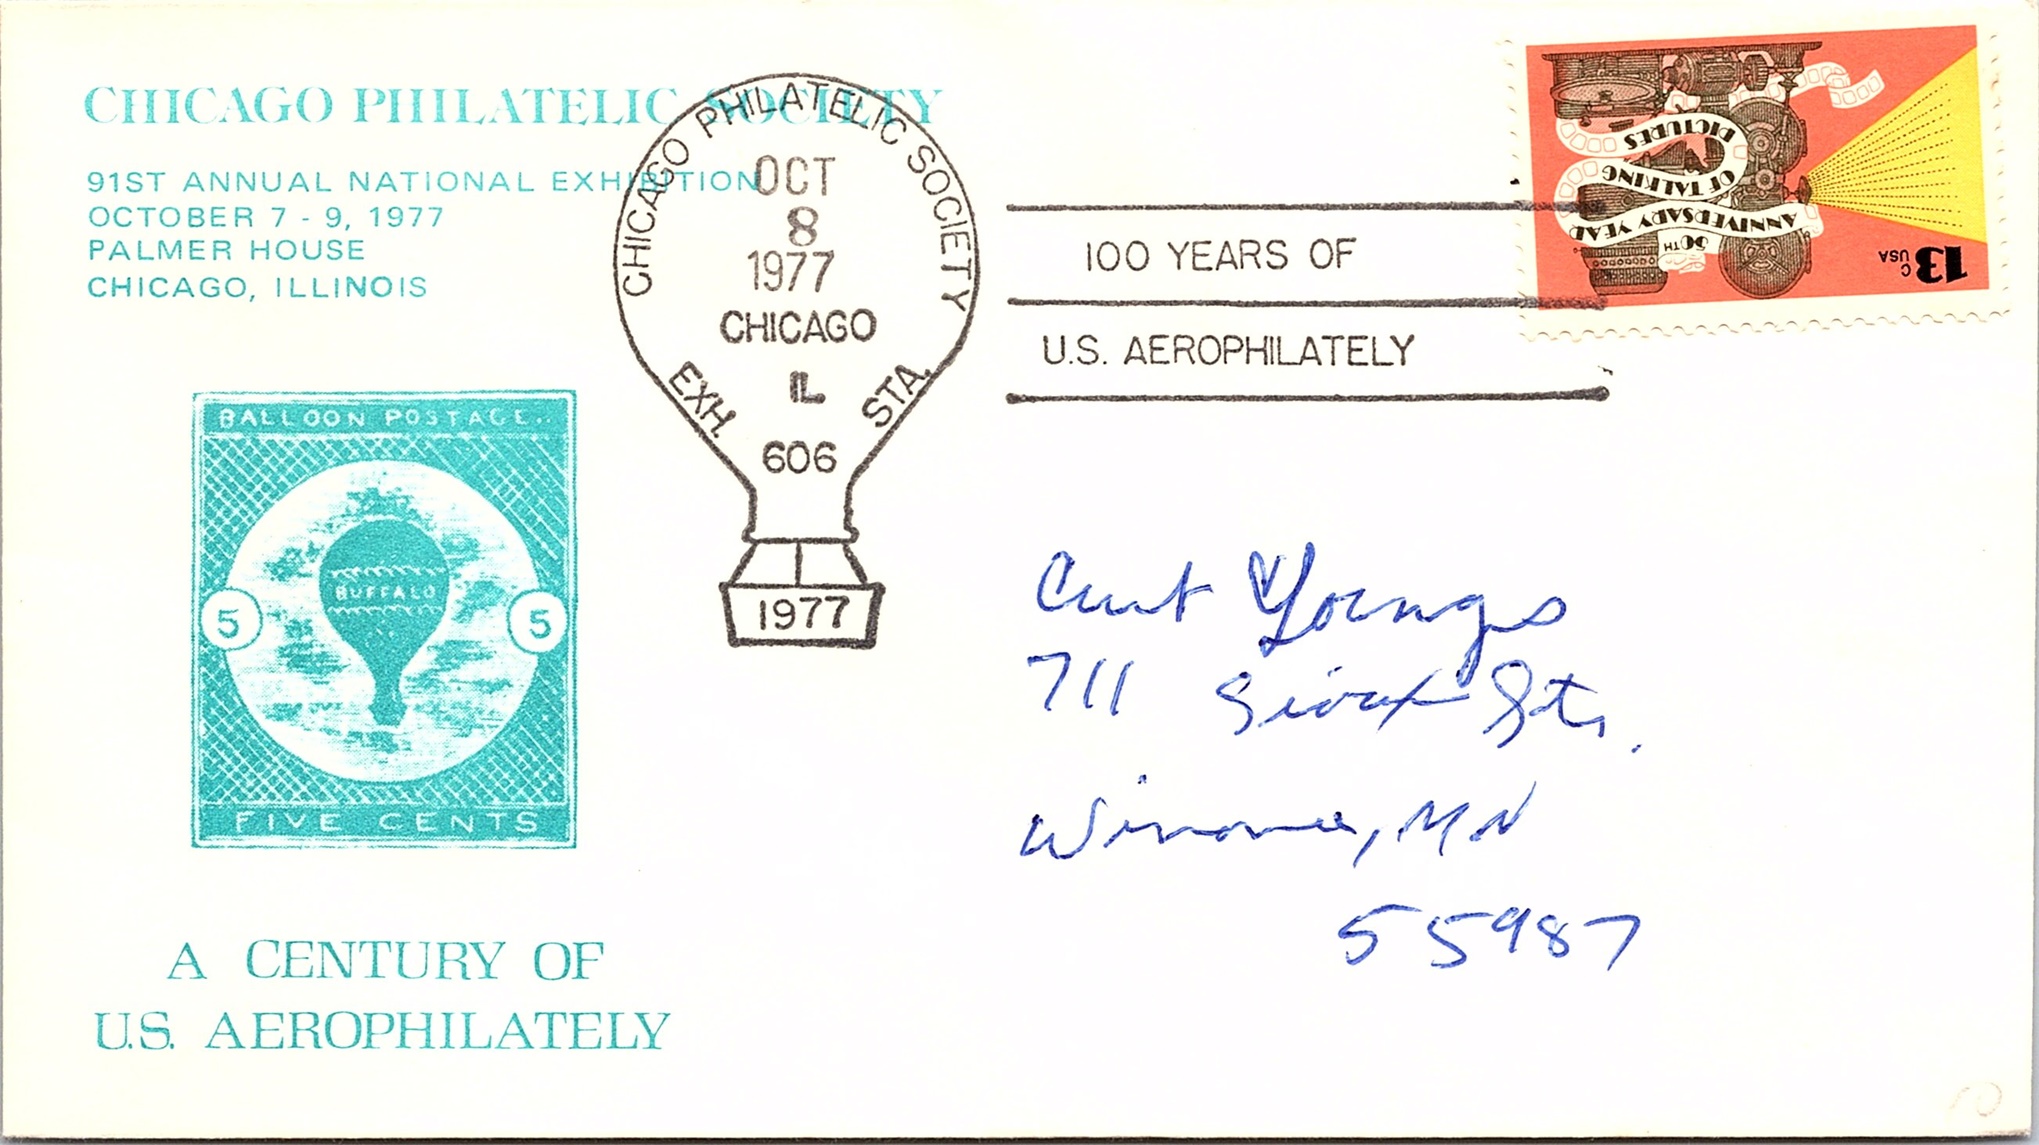 CHICAGO PHILATELIC SOCIETY
91ST ANNUAL NATIONAL EXHIBITION
OCTOBER 7 - 9, 1977
PALMER HOUSE
CHICAGO, ILLINOIS
CHICAGO PHILATELIC SOCIETY
OCT
8
1977
CHICAGO
IL
EXH. STA.
606
1977
100 YEARS OF
U.S. AEROPHILATELY
13c
USA
50TH
ANNIVERSARY YEAR
OF TALKING
PICTURES
BALLOON POSTAGE..
BUFFALO
5 5
FIVE CENTS
A CENTURY OF
U.S. AEROPHILATELY
Curt Youngs
711 Sioux St.
Winona, MN
55987
10